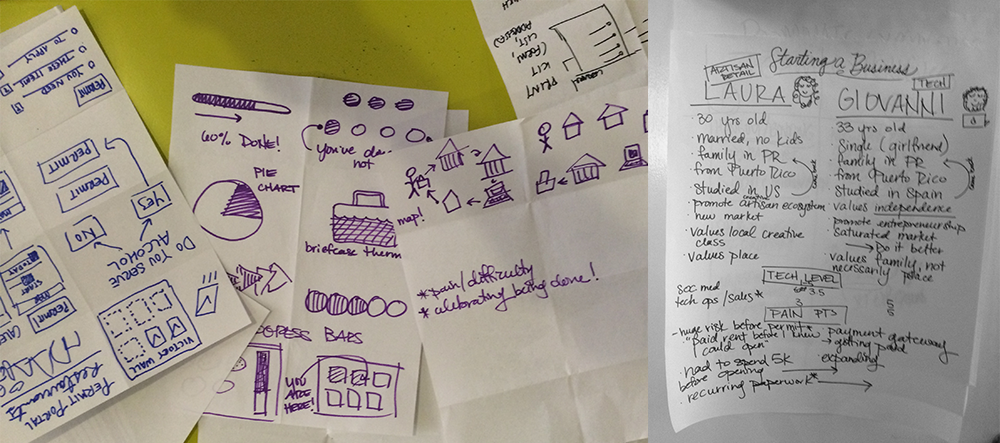 TO APPLY
THESE ITEMS
YOU NEED
PERMIT
PERMIT
PERMIT
YES
NO
DO YOU SERVE
ALCOHOL
TODAY
START
PERMIT
VICTORY WALL
PERMIT PORTAL
Restaurants
60% DONE!
you've do
not
PIE
CHART
briefcase therm
BARS
YOU
ARE
HERE!
PRINT
KIT
(FORM,
LIST,
ADDRESS)
map!
* pain/difficulty
* celebrating being done!
Starting a Business
ARTISAN
RETAIL
LAURA
· 30 yrs old
· married, no kids
· family in PR
· from Puerto Rico
· studied in US
creative
· promote artisan ecosystem
new market
· values local creative
class
· values place
TECH
GIOVANNI
33 yrs old
· Single (girlfriend)
· family in PR
· from Puerto Rico
· Studied in Spain
· values independence
· promote entrepreneurship
Saturated market
→ Do it better
· values family, not
necessarily place
TECH LEVEL
3.5
soc med
tech ops / sales*
3
5
5
PAIN PTS
- huge risk before permit*
"Paid rent before I knew
I could open"
· had to spend 5K
before opening
· recurring paperwork*
payment gateway
→ getting paid
expanding